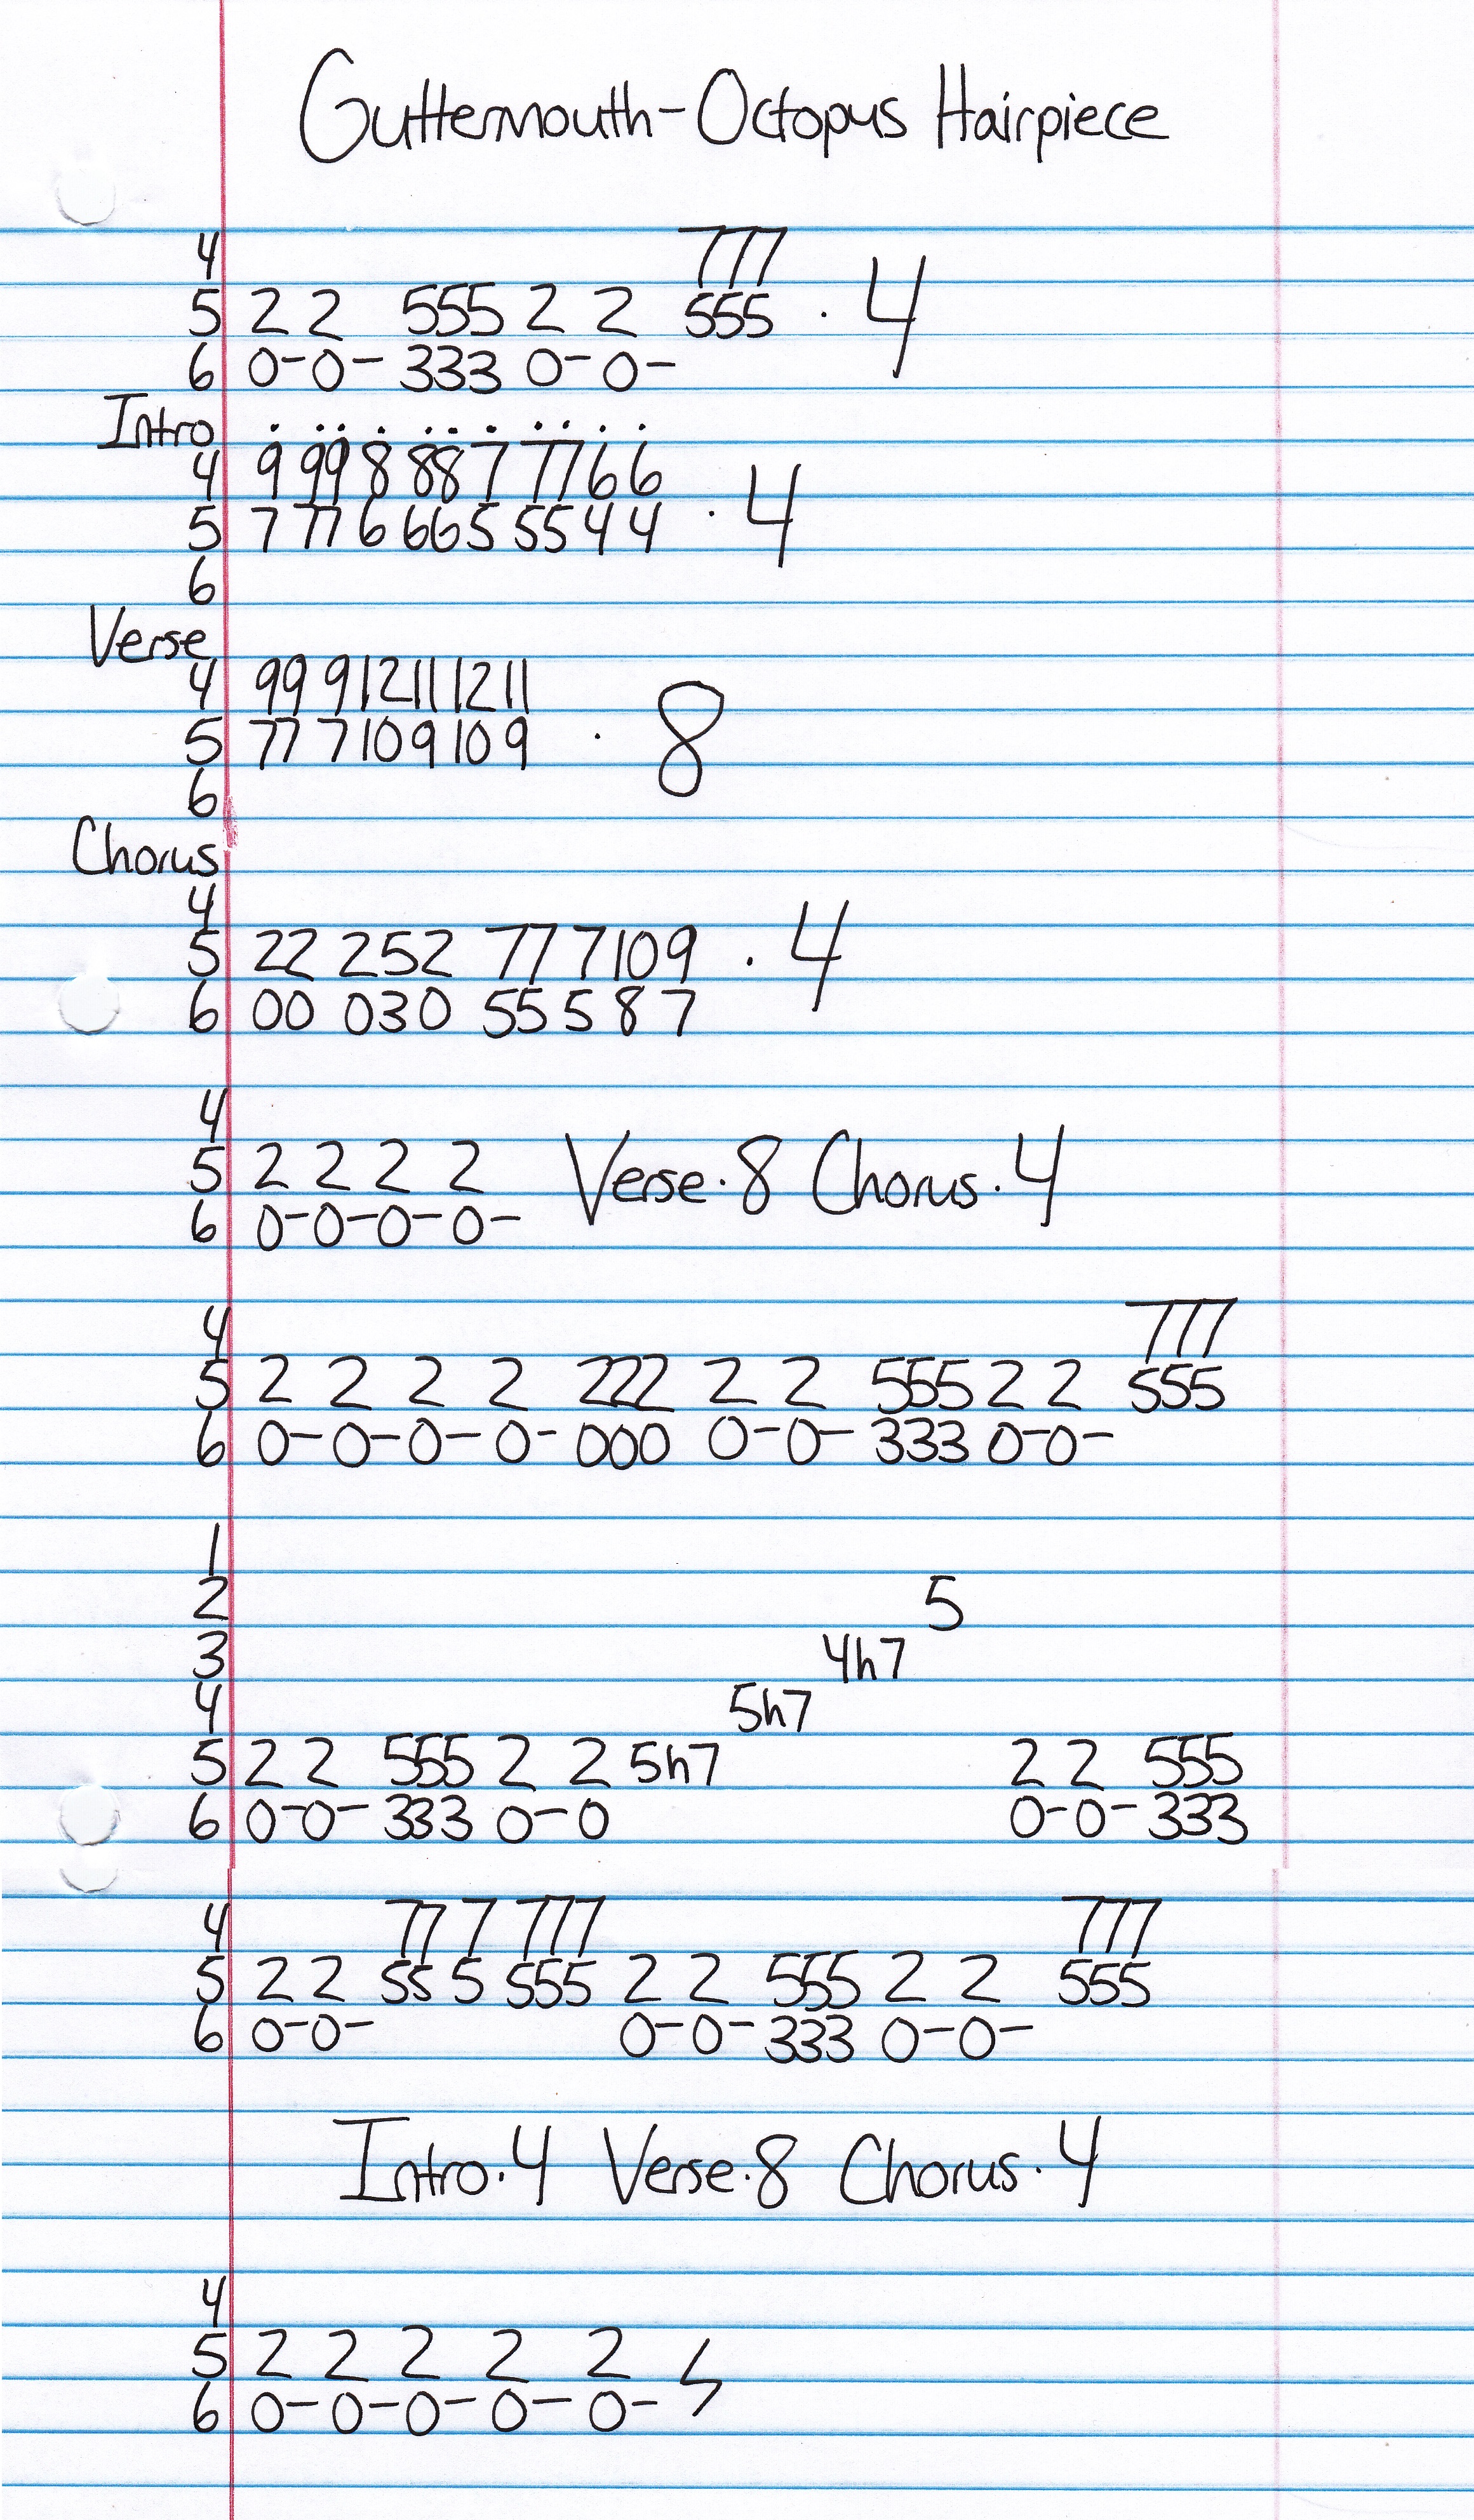 Guttermouth-Octopus Hairpiece
4 777
5 2 2 555 2 2 555 · 4
6 0-0- 333 0-0-
Intro
4 9 99 8 88 7 77 6 6
5 7 77 6 66 5 55 4 4 · 4
6
Verse
4 99 9 12 11 12 11
5 77 7 10 9 10 9 · 8
6
Chorus
4
5 22 252 77 7 10 9 · 4
6 00 030 55 5 8 7
4
5 2 2 2 2 Verse·8 Chorus·4
6 0-0-0-0-
4 777
5 2 2 2 2 222 2 2 555 2 2 555
6 0-0-0-0- 000 0-0- 333 0-0-
1
2 5
3 4h7
4 5h7
5 2 2 555 2 2 5h7 2 2 555
6 0-0- 333 0-0 0-0- 333
4 77 7 777 777
5 2 2 55 5 555 2 2 555 2 2 555
6 0-0- 0-0- 333 0-0-
Intro·4 Verse·8 Chorus·4
4
5 2 2 2 2 2
6 0-0-0-0-0-